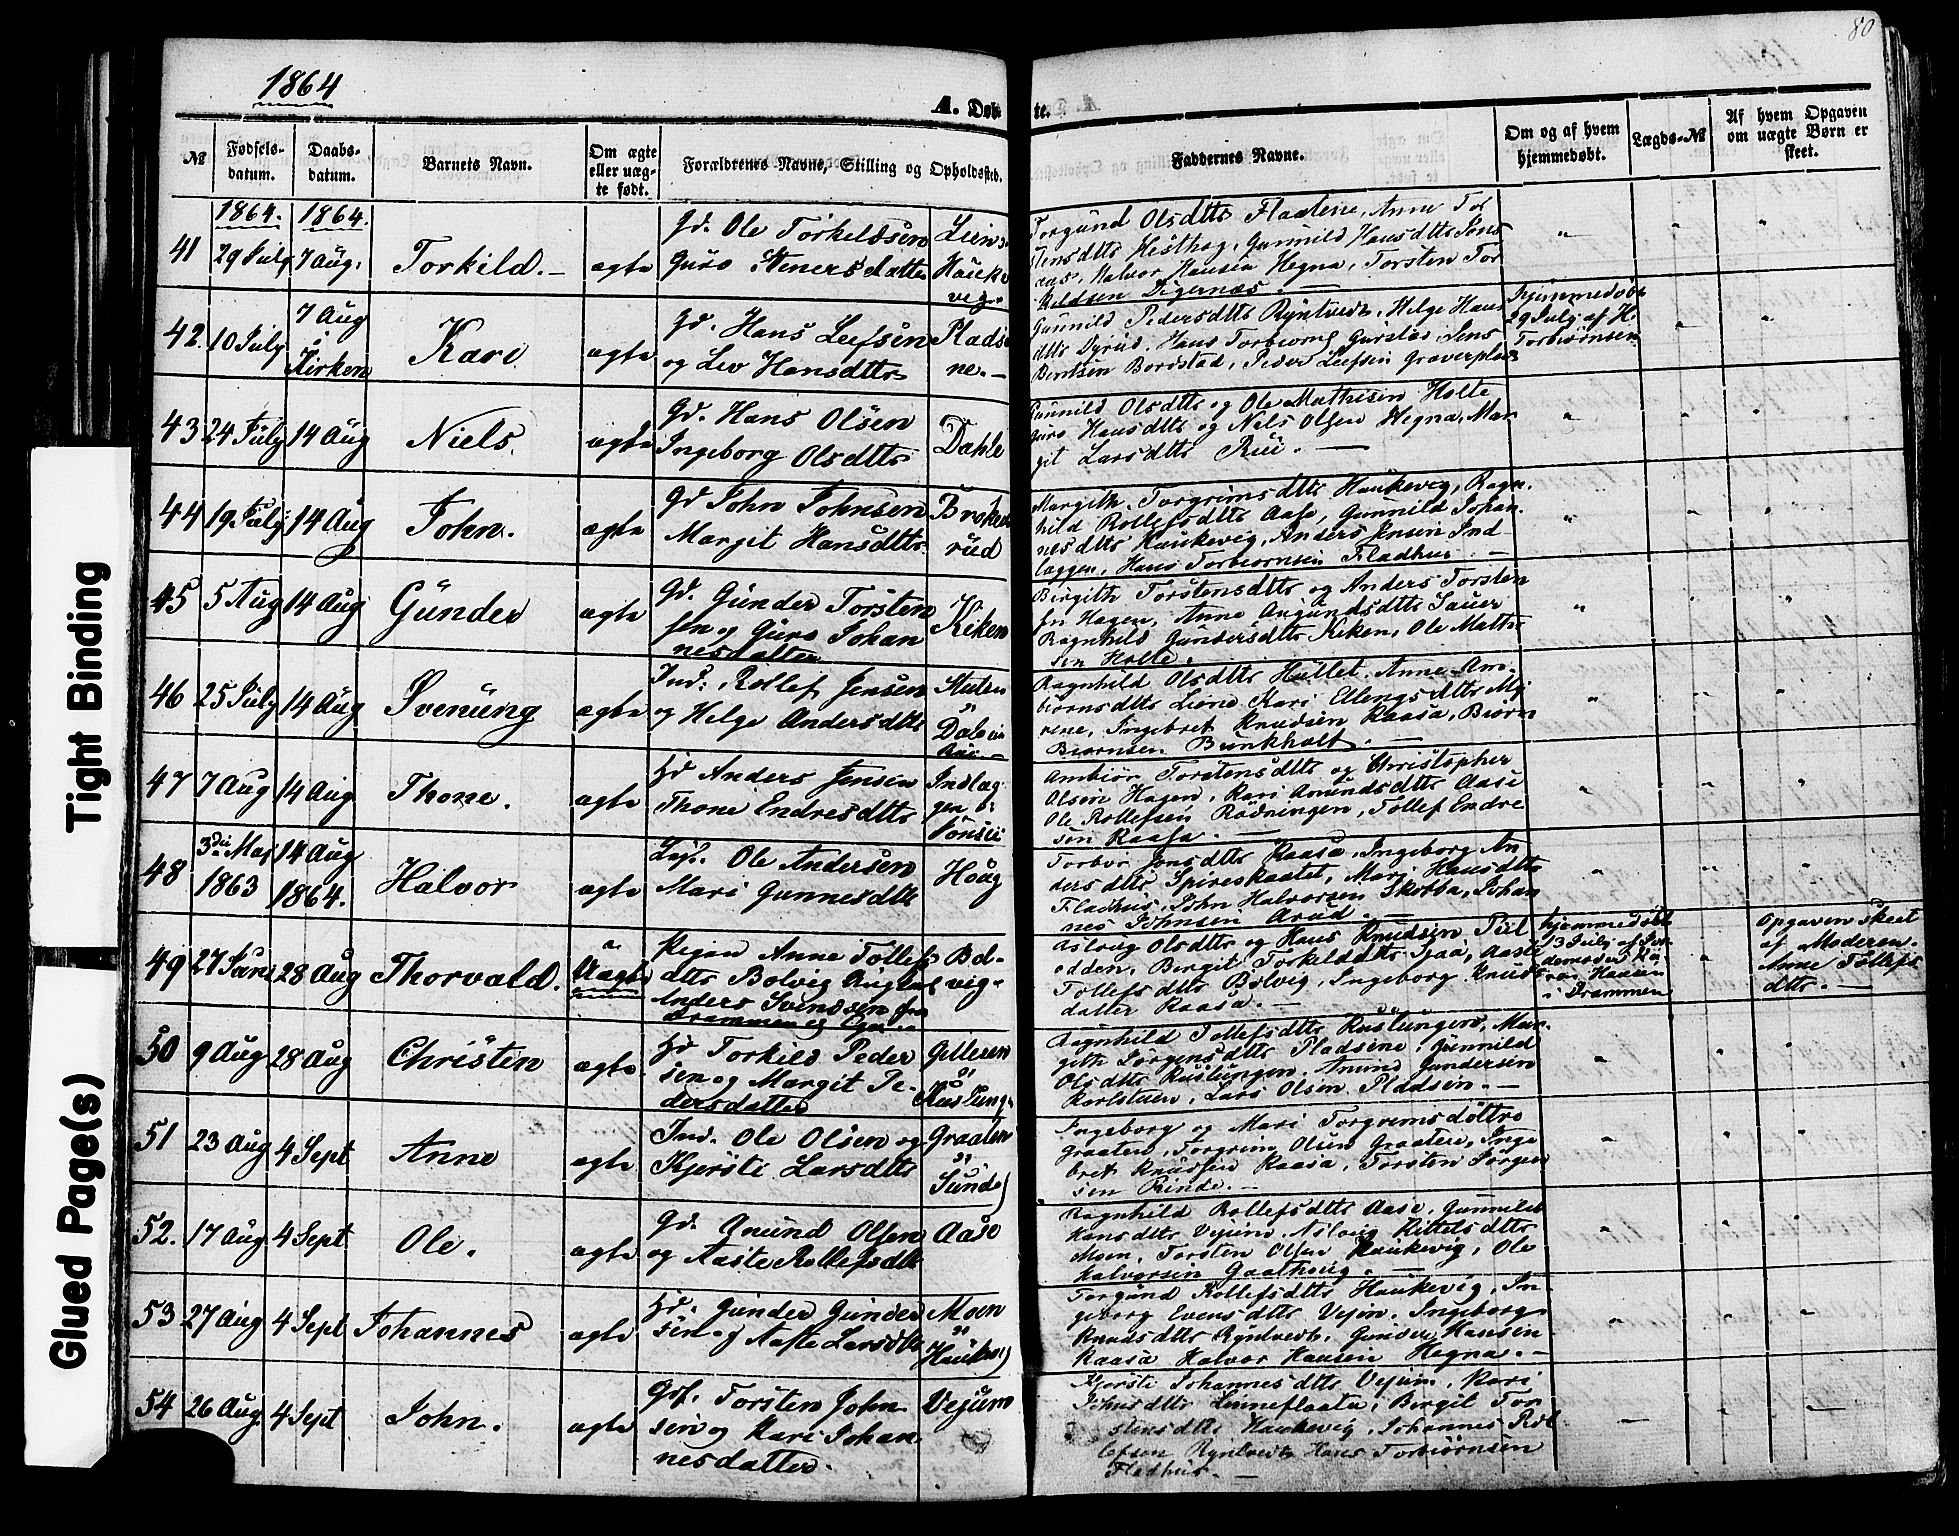 80
1864
A. Døb
te.
№
Fødsels-
datum.
Daabs-
datum.
Barnets Navn.
Om ægte
eller uæg-
te født.
Forældrenes Navne, Stilling og Opholdssted.
Faddernes Navne.
Om og af hvem
hjemmedøbt.
Lægds-№
Af hvem Opgaven
om uægte Børn er
skeet.
1864. 1864.
41 29 July 7 Aug. Torkild. — ægte
Gd. Ole Torkeldsen
Guro Steners datter
Torgund Olsdttr Flaatene, Anne Tor
stensdttr Hesthag, Gunnild Hansdttr
Halvor Hansen Hegna, Torsten Tor
keldsen Digernæs. —
42. 10 July 7 Aug
i
Kirken
Kari. ægte
Gd. Hans Leefsen
og Liv Hansdttr
Pladse
ne. —
Gunnild Pedersdttr Ryntvedt, Helge Hans
dttr Dyrud, Hans Torbiørns.
Bentsen Bordstad, Peder Leefsen Graverplads
hjemmedøbt
29 July af H.
Torbiørnsen
43 24 July 14 Aug Niels. ægte
Gd. Hans Olsen
Ingeborg Olsdttr
Dahle
Gunnild Olsdttr og Ole Mathisen Holte
Guro Hansdttr og Niels Olsen Hegna, Mar
git Larsdttr Rui. —
44 19 July 14 Aug John. ægte
Gd John Johnsen
Margit Hansdttr
Brøke
rud
Margith Torgrimsdttr Haukevig, Ragn.
hild Rollefsdttr Aase, Gunnild Johan.
nesdttr Haukevig, Anders Jensen Ind
læggen, Hans Torbiørnsen Fladhus. —
45 5 Aug 14 Aug Gunder ægte
Gd. Gunder Torsten
sen og Guro Johan
nesdatter
Kiken
Birgith Torstensdttr og Anders Torsten
sen Hagen, Anne Amundsdttr Sauer
Ragnhild Gundersdttr Kiken, Ole Mathi
sen Holte.
46 25 July 14 Aug Svenung ægte
Ind: Rollef Jensen
og Helge Andersdttr
Ragnhild Olsdttr Hullet, Anne Am-
biørnsdttr Liene, Kari Ellingsdttr My
rene, Ingebret Knudsen Raasa, Biørn
Biørnsen Bunkholt. —
47 7 Aug 14 Aug Thone. ægte
Gd Anders Jensen
Thone Endresdttr
Indlæg
gen i
Ambiør Torstensdttr og Christopher
Olsen Hagen, Kari Amundsdttr Aase
Ole Rollefsen Rødningen, Tollef Endre
sen Raasa. —
48 3die Maj
1863
14 Aug
1864.
Halvor ægte
Ole Andersen
Mari Gunnesdttr
Haug
Torbør Jonsdttr Raasa, Ingeborg An
dersdttr Spireskaatet, Mari Hansdttr
Fladhus, John Halvorsen Skotba, Johan
nes Johnsen Arud. —
49 27 Juni 28 Aug Thorvald. Uægte
Pigen Anne Tollefs
dttr Bolvig
Anders Svendsen fra
Drammen
Bol-
vig.
Aslaug Olsdttr og Hans Knudsen Piil
odden, Birgit Torkildsdttr Gaa, Aaste
Tollefsdttr Bolvig, Ingeborg Knuds
datter Raasa. —
hjemmedøbt
13 July af Jor-
demoder
Hansen
i Drammen
Opgaven skeet
af Moderen
Anne Tollefs
dttr. —
50 9 Aug 28 Aug Christen ægte
Gd Torkild Peder
sen og Margit Pe-
dersdatter
Ragnhild Tollefsdttr Ruslungen, Mar.
geth Jørgensdttr Pladsene, Gunnild
Olsdttr Ruslungen, Amund Gundersen
Karlstuen, Lars Olsen Pladsen. —
51 23 Aug 4 Sept Anne ægte
Ind. Ole Olsen og
Kjersti Larsdttr
Graaten
i
Sunde)
Ingeborg og Mari Torgrimsdøttre
Graaten, Torgrim Olsen Graaten, Inge
bret Knudsen Raasa, Torsten Jørgen
sen Rinde. —
52. 17 Aug 4 Sept Ole. ægte
Gd. Amund Olsen
og Aaste Rollefsdttr
Aase
Ragnhild Rollefsdttr Aase, Gunnild
Hansdttr Vejum, Aslaug Kittelsdttr
Moen, Torsten Olsen Haukevig, Ole
Halvorsen Gaathaug. —
53 27 Aug 4 Sept Johannes ægte
Gd. Gunder Gunder
sen og Aaste Larsdttr
Moen
i
Haukev)
Torgund Rollefsdttr Haukevig, In
geborg Evensdttr Vejum, Ingeborg
Knudsdttr Ryntvedt, Gunder Hansen
Raasa Halvor Hansen Hegna. —
54 26 Aug 4 Sept John. ægte
Torsten John
sen og Kari Johan
nesdatter.
Vejum
Kjersti Johannesdttr Vejum, Kari
Johnsdttr Linneflaata, Birgit Tor
stensdttr Haukevig, Johannes Rol
lefsen Ryntvedt Hans Torbiørnsen
Fladhus. —
Tight Binding
Glued Page(s)